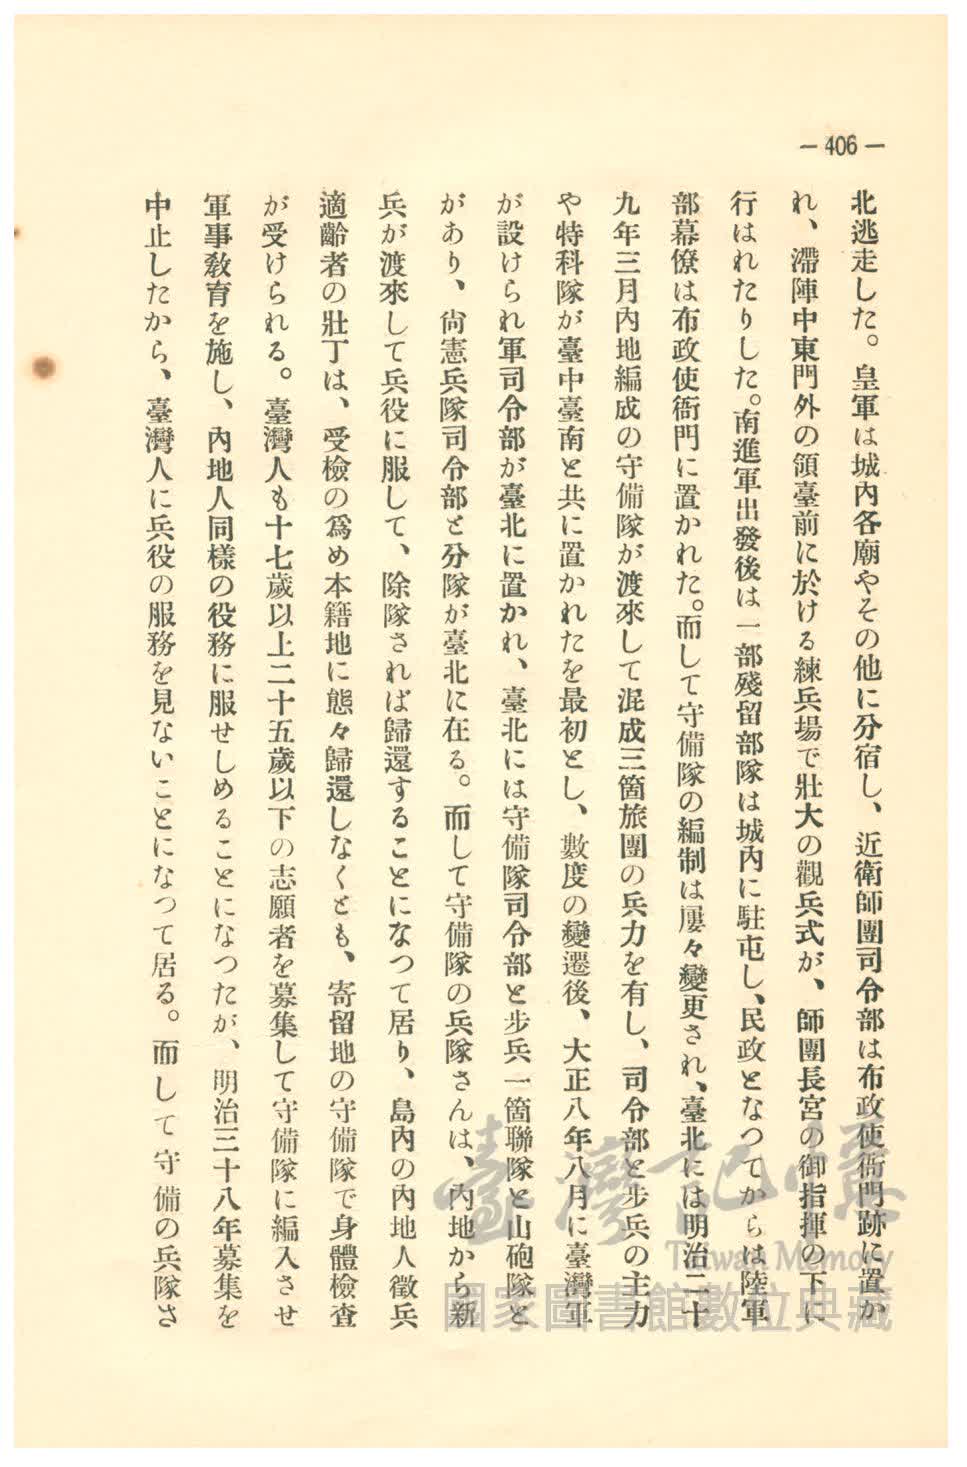 — 406 —
北逃走した。皇軍は城內各廟やその他に分宿し、近衛師團司令部は布政使衙門跡に置か
れ、滯陣中東門外の領臺前に於ける練兵場で壯大の觀兵式が、師團長宮の御指揮の下に
行はれたりした。南進軍出發後は一部殘留部隊は城內に駐屯し、民政となつてからは陸軍
部幕僚は布政使衙門に置かれた。而して守備隊の編制は屢々變更され、臺北には明治二十
九年三月內地編成の守備隊が渡來して混成三箇旅團の兵力を有し、司令部と步兵の主力
や特科隊が臺中臺南と共に置かれたを最初とし、數度の變遷後、大正八年八月に臺灣軍
が設けられ軍司令部が臺北に置かれ、臺北には守備隊司令部と步兵一箇聯隊と山砲隊と
があり、尙憲兵隊司令部と分隊が臺北に在る。而して守備隊の兵隊さんは、內地から新
兵が渡來して兵役に服して、除隊されば歸還することになつて居り、島內の內地人徵兵
適齡者の壯丁は、受檢の爲め本籍地に態々歸還しなくとも、寄留地の守備隊で身體檢查
が受けられる。臺灣人も十七歲以上二十五歲以下の志願者を募集して守備隊に編入させ
軍事敎育を施し、內地人同樣の役務に服せしめることになつたが、明治三十八年募集を
中止したから、臺灣人に兵役の服務を見ないことになつて居る。而して守備の兵隊さ
臺灣記憶
Taiwan Memory
國家圖書館數位典藏